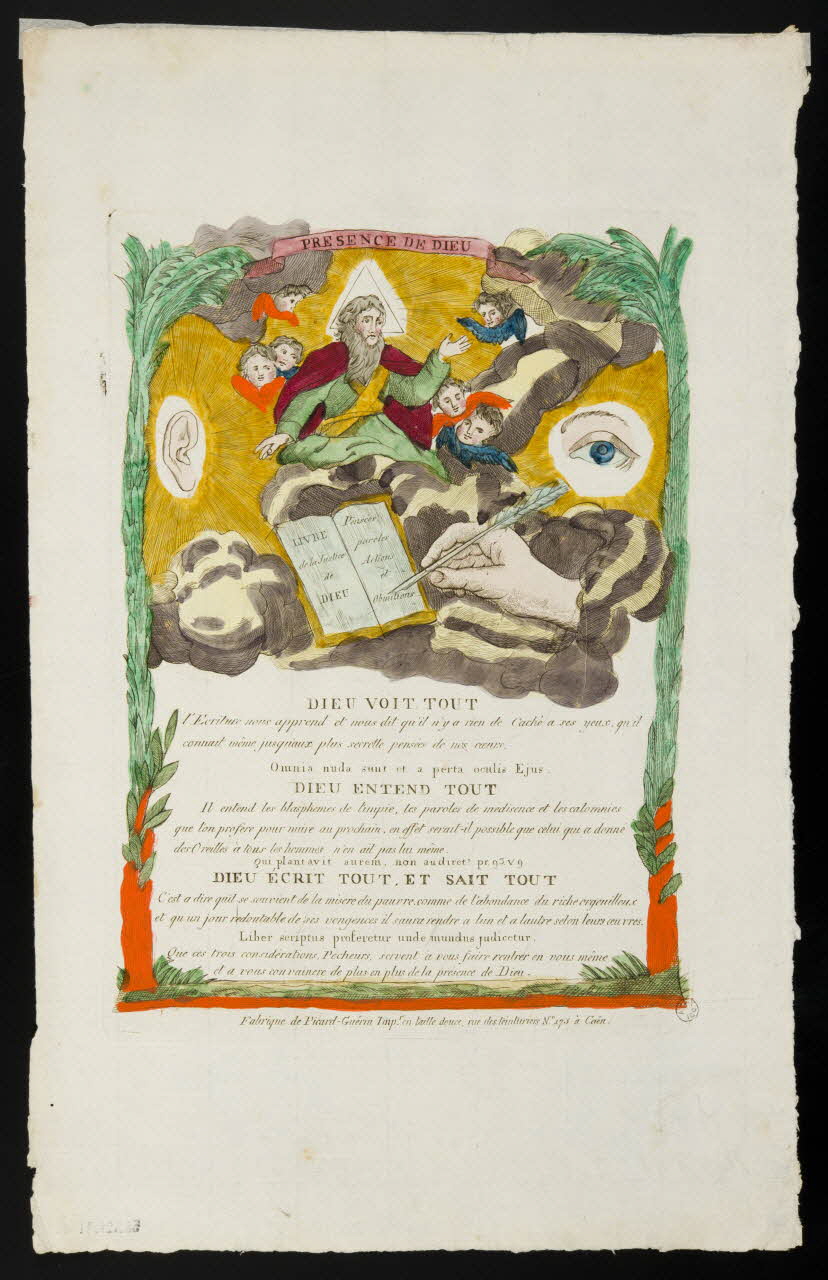 PRESENCE DE DIEU
LIVRE
de la Justice
de
DIEU
Penseés
paroles
Actions
et
Omitions
DIEU VOIT TOUT
l'Ecriture nous apprend et nous dit qu'il n'y a rien de Caché a ses yeux, qu'il
connait même jusqu'aux plus secrette pensées de nos cœurs.
Omnia nuda sunt et a perta oculis Ejus.
DIEU ENTEND TOUT
Il entend les blasphemes de l'impie, les paroles de medisence et les calomnies
que l'on profere pour nuire au prochain, en effet serait-il possible que celui qui a donne
des Oreilles à tous les hommes n'en ait pas lui même.
Qui plantavit aurem, non audiret? ps. 93. v 9
DIEU ECRIT TOUT, ET SAIT TOUT
C'est a dire qu'il se souvient de la misere du pauvre, comme de l'abondance du riche orgeuilleux
et qu'un jour redoutable de ses vengences il saura rendre a l'un et a l'autre selon leurs œuvres.
Liber scriptus proferetur unde mundus judicetur.
Que ces trois considérations, Pecheurs, servent a vous faire rentrer en vous même
et a vous convaincre de plus en plus de la présence de Dieu.
Fabrique de Picard-Guérin Imp.r en taille douce, rue des teinturiers N.º 175 à Caën.